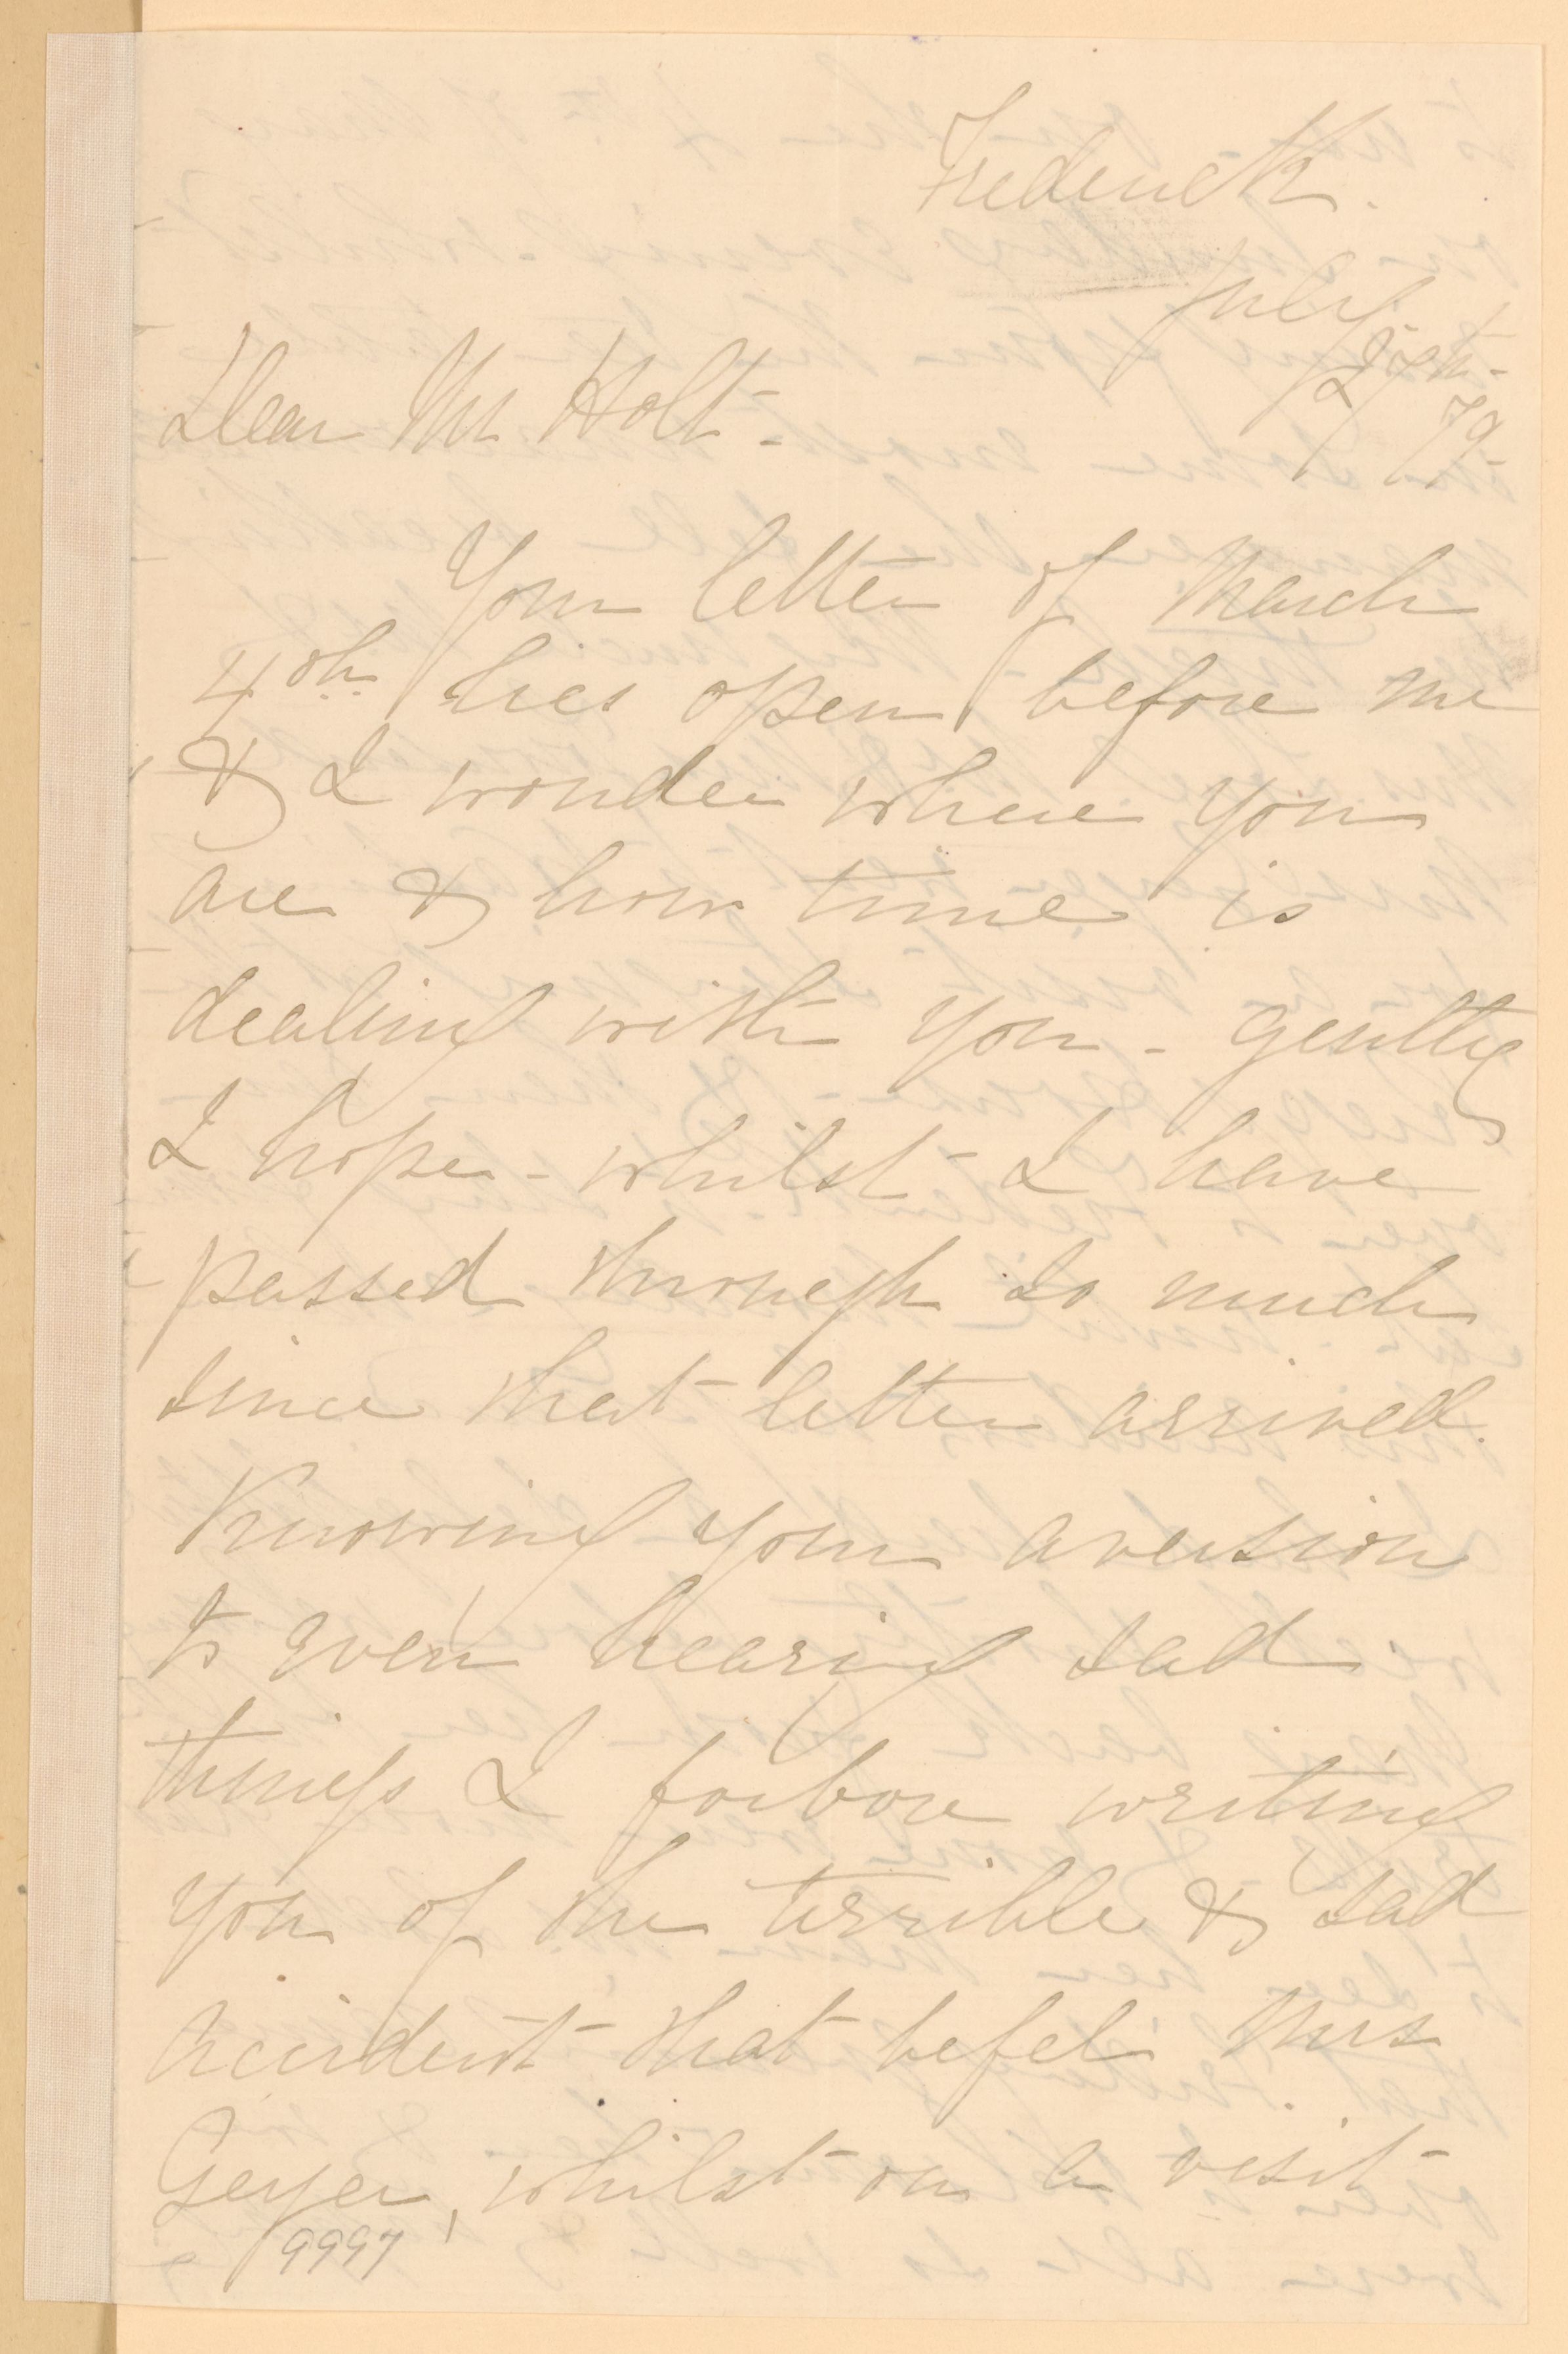 Frederick.
July
27th-
79-
Dear Mr Holt-
Your letter of March
4th lies open before me
& I wonder where you
are & how time is
dealing with you - gently
I hope - whilst I have
passed through so much
since that letter arrived.
Knowing your aversion
to even hearing sad
things I forbore writing
you of the terrible & sad
accident that befel Mrs
Geyer, whilst on a visit
9997